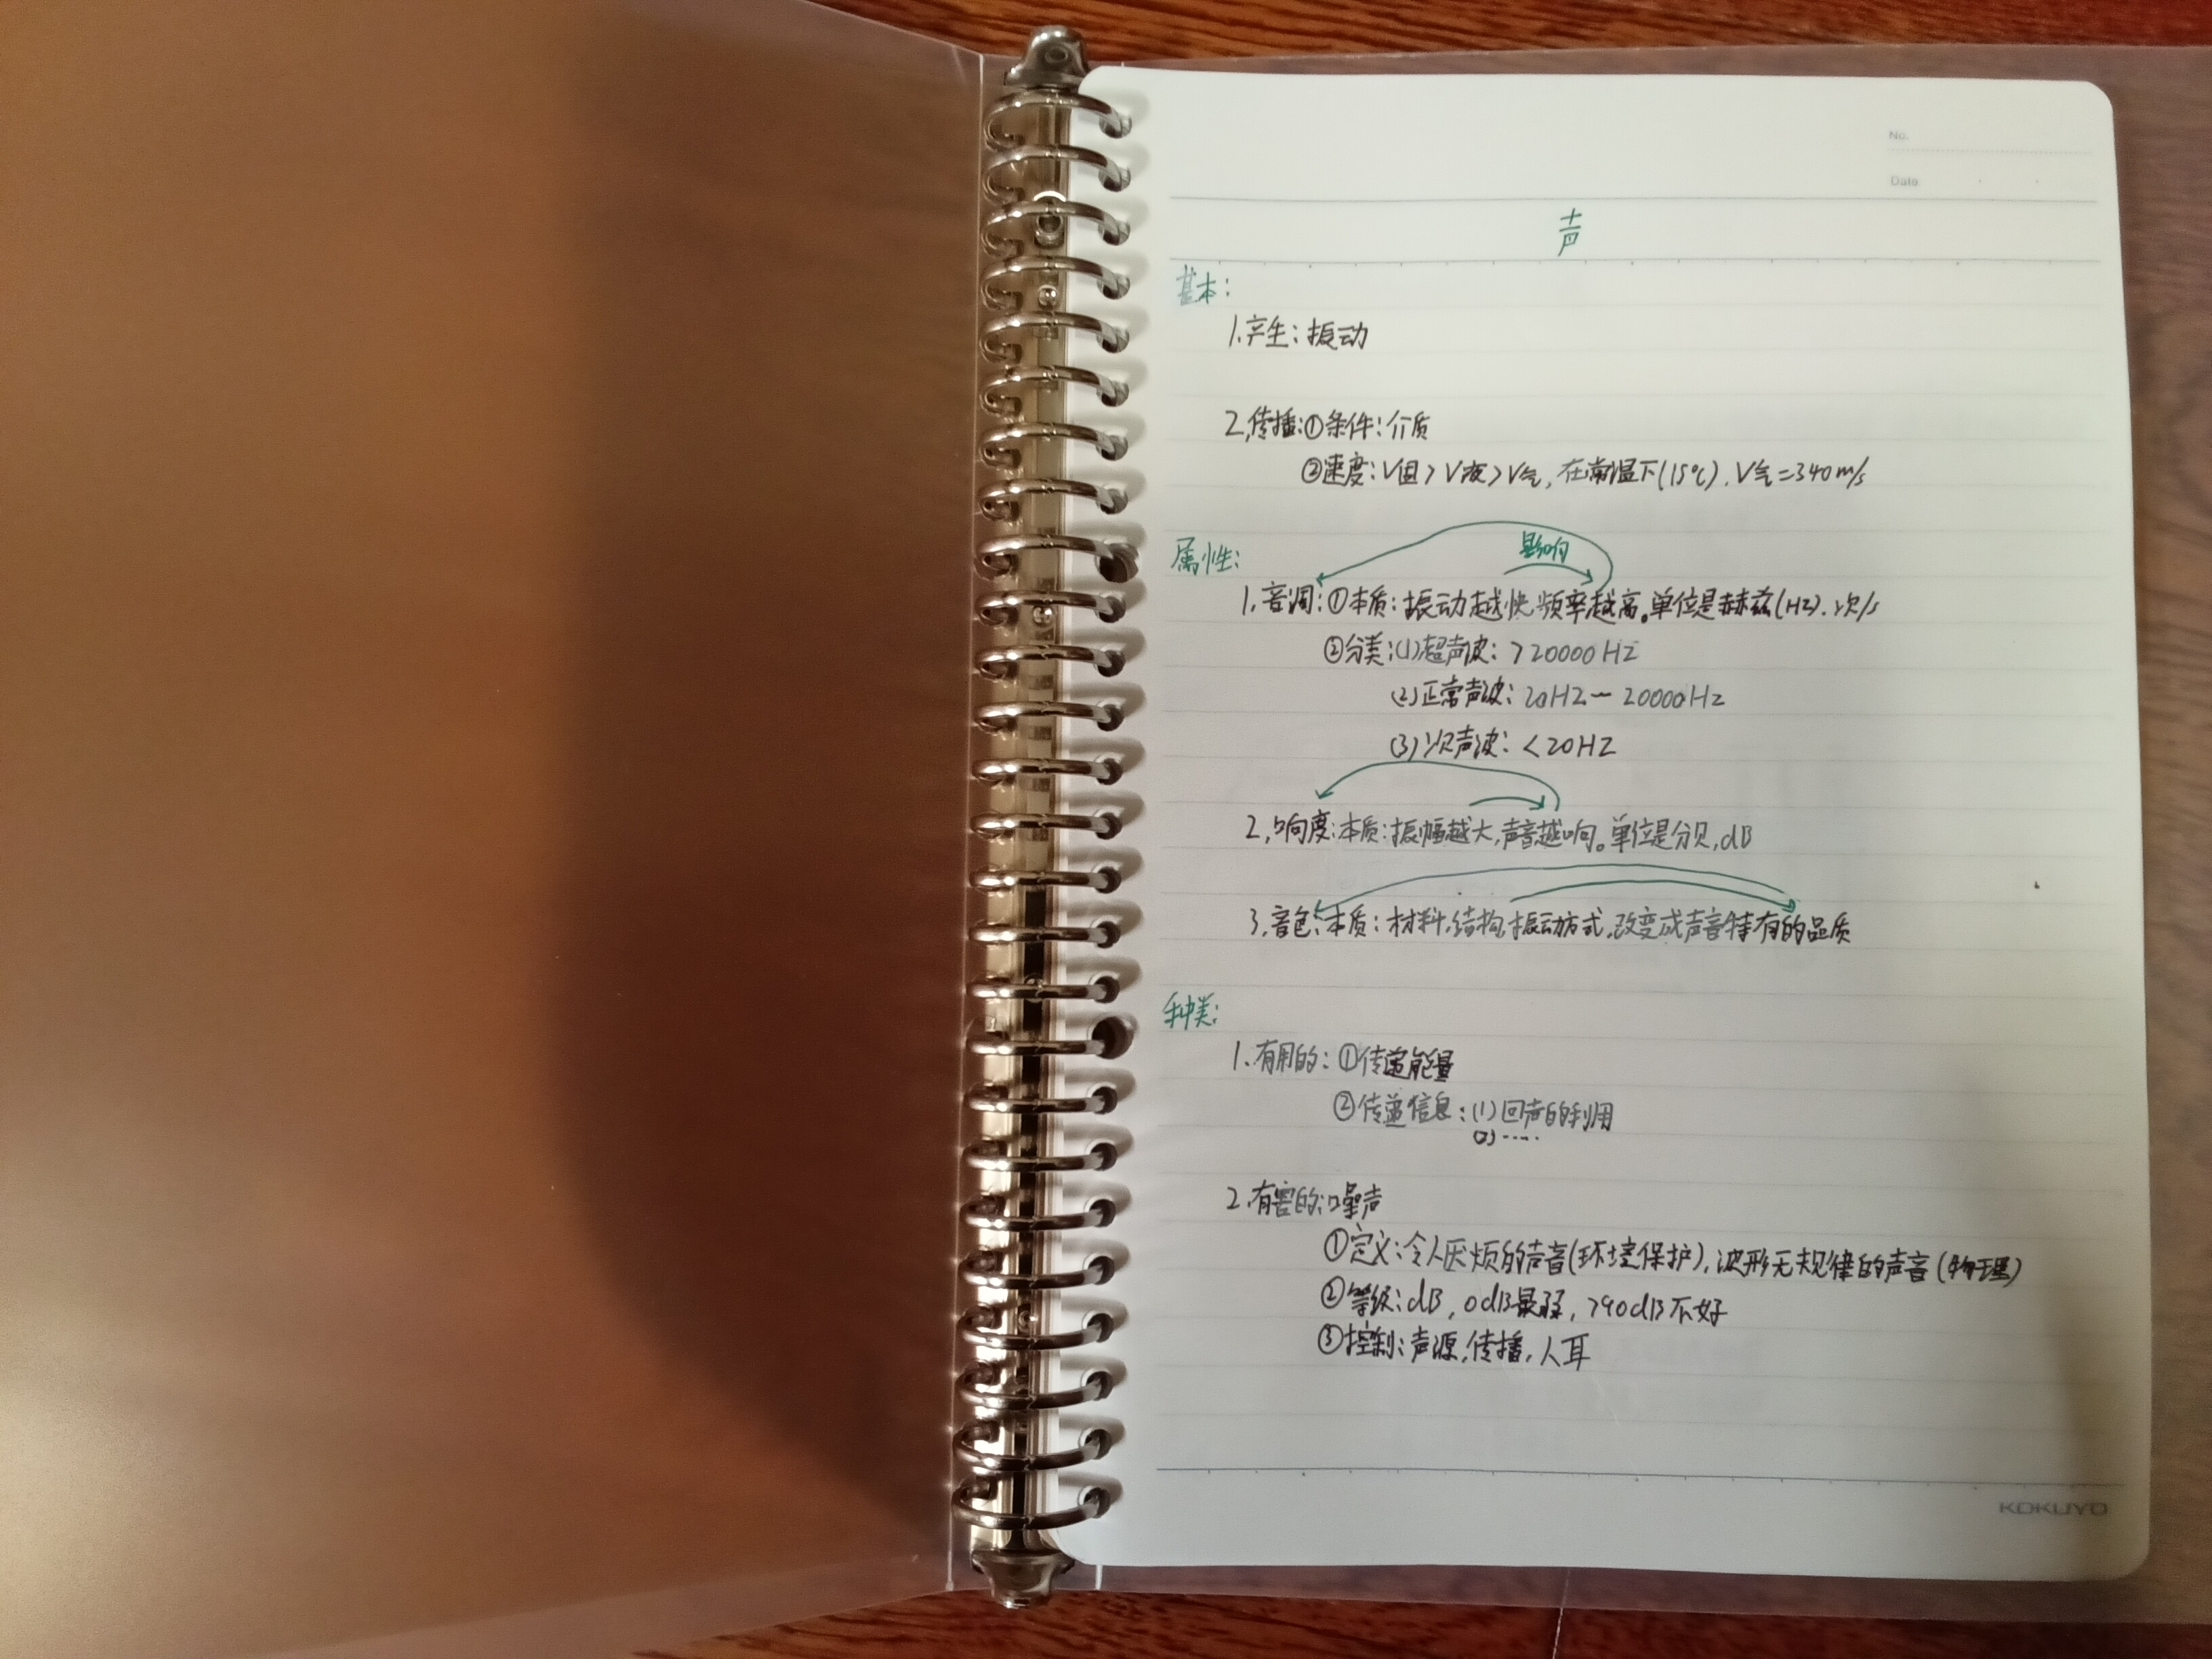 No.
Date
声
基本:
1.产生:振动
2.传播:①条件:介质
②速度:V固>V液>V气,在常温下(15℃),V气=340m/s
属性:
影响
1.音调:①本质:振动越快,频率越高。单位是赫兹(HZ).次/s
②分类:(1)超声波:>20000HZ
(2)正常声波:20HZ-20000Hz
(3)次声波:<20HZ
2.响度:本质:振幅越大,声音越响。单位是分贝,dB
3.音色:本质:材料,结构,振动方式,改变成声音特有的品质
种类:
1.有用的:①传递能量
②传递信息:(1)回声的利用
(2)……
2.有害的:噪声
①定义:令人厌烦的声音(环境保护),波形无规律的声音(物理)
②等级:dB,0dB最弱,>90dB不好
③控制:声源,传播,人耳
KOKUYO